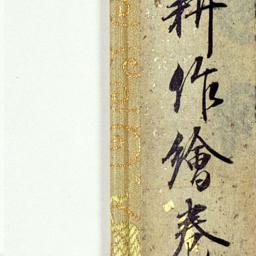 耕作繪卷